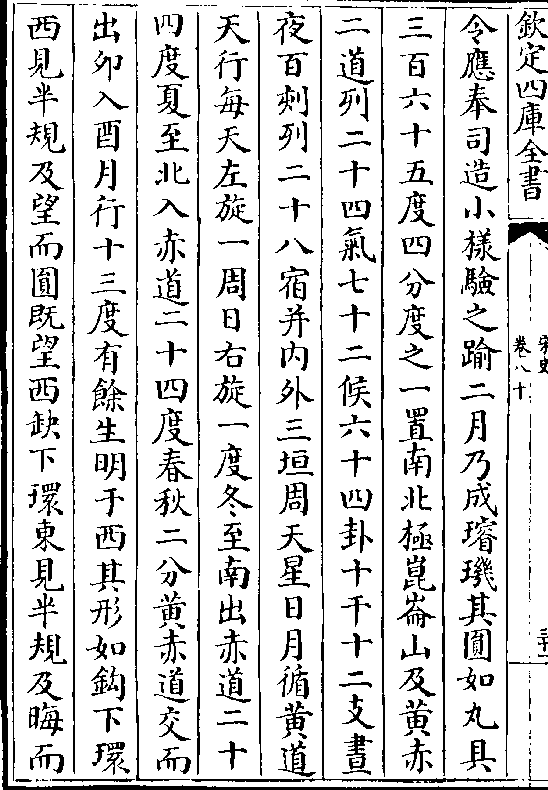 欽定四庫全書
宋史
卷八十
令應奉司造小樣驗之踰二月乃成璿璣其圓如丸具
三百六十五度四分度之一置南北極崑崙山及黃赤
二道列二十四氣七十二候六十四卦十干十二支晝
夜百刻列二十八宿并内外三垣周天星日月循黃道
天行每天左旋一周日右旋一度冬至南出赤道二十
四度夏至北入赤道二十四度春秋二分黃赤道交而
出卯入酉月行十三度有餘生明于西其形如鈎下環
西見半規及望而圓既望西缺下環東見半規及晦而